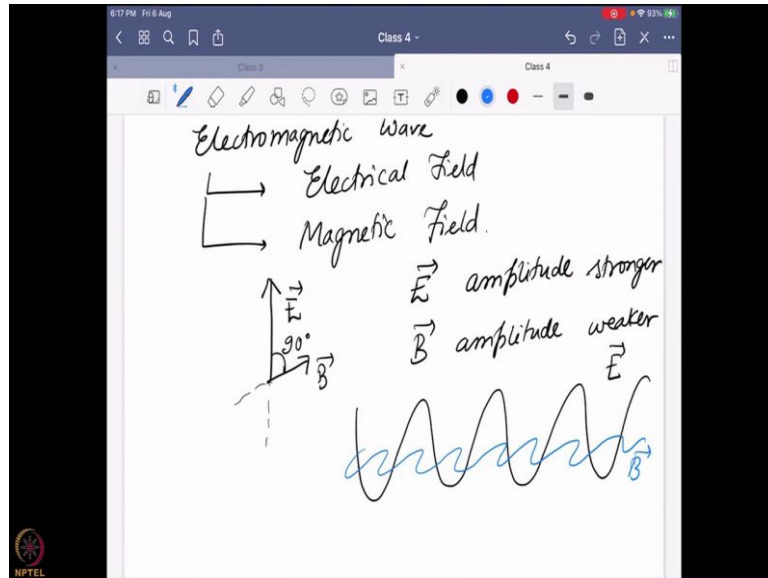 6:17 PM Fri 6 Aug
93%
Class 4
Class 3
Class 4
Electromagnetic Wave
Electrical Field
Magnetic Field.
E amplitude stronger
B amplitude weaker
E
90°
B
E
B
NPTEL